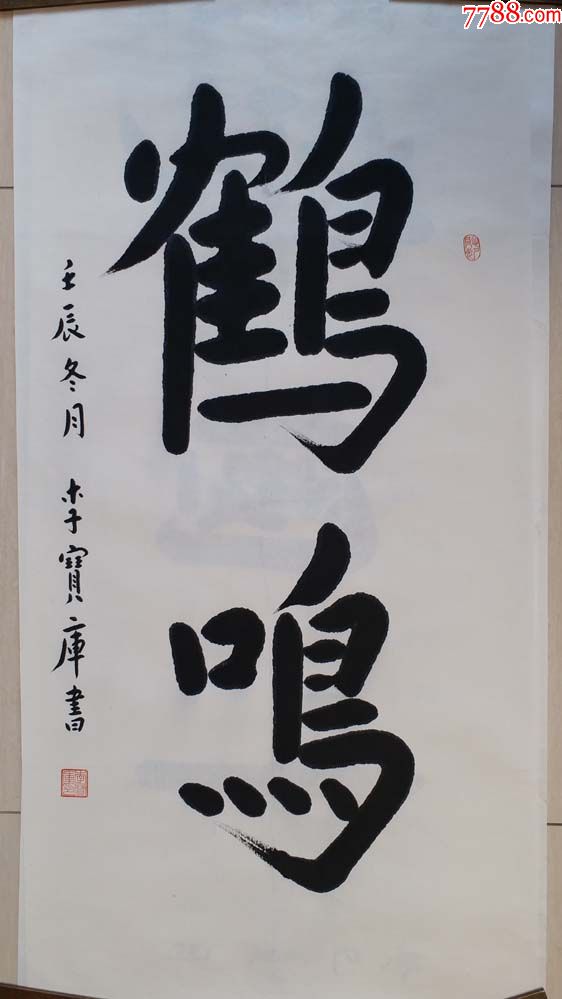 7788.com
鶴鳴
壬辰冬月 李寶庫書